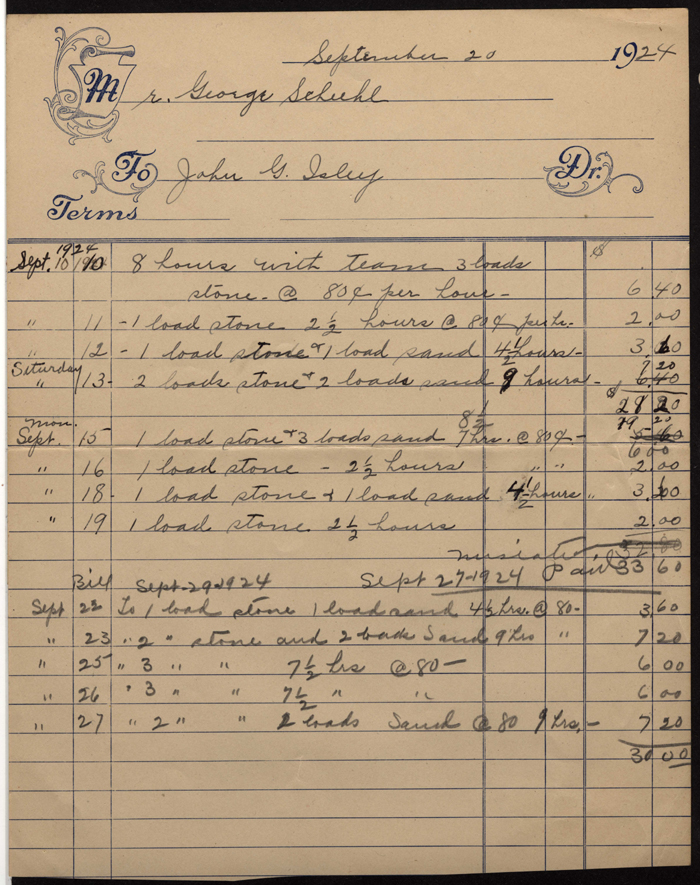 September 20 1924
Mr. George Schehl
To John G. Isley Dr.
Terms
1924
Sept. 10 8 hours with team 3 loads $
stone - @ 80¢ per hour - 6.40
" 11 - 1 load stone 2 1/2 hours @ 80¢ per hr. 2.00
" 12 - 1 load stone & 1 load sand 4 1/2 hours - 3.60
Saturday 7 20
" 13 - 2 loads stone & 2 loads sand 9 hours - 6.40
$
19 20
Mon. 8 1/2
Sept. 15 1 load stone & 3 loads sand 7 hrs. @ 80¢ -
6 00
" 16 1 load stone - 2 1/2 hours " " 2.00
" 18 - 1 load stone & 1 load sand 4 1/2 hours " 3.
" 19 1 load stone 2 1/2 hours 2.00
32.80
Sept 27-1924 Paid 33 60
Bill Sept-29-1924
Sept 22 To 1 load stone 1 load sand 4 1/2 hrs. @ 80- 3.60
" 23 " 2 " stone and 2 loads Sand 9 hrs " 7 20
" 25 " 3 " " 7 1/2 hrs @ 80 - 6 00
" 26 " 3 " " 7 1/2 " " 6 00
" 27 " 2 " " 2 loads Sand @ 80 9 hrs. - 7 20
30 00